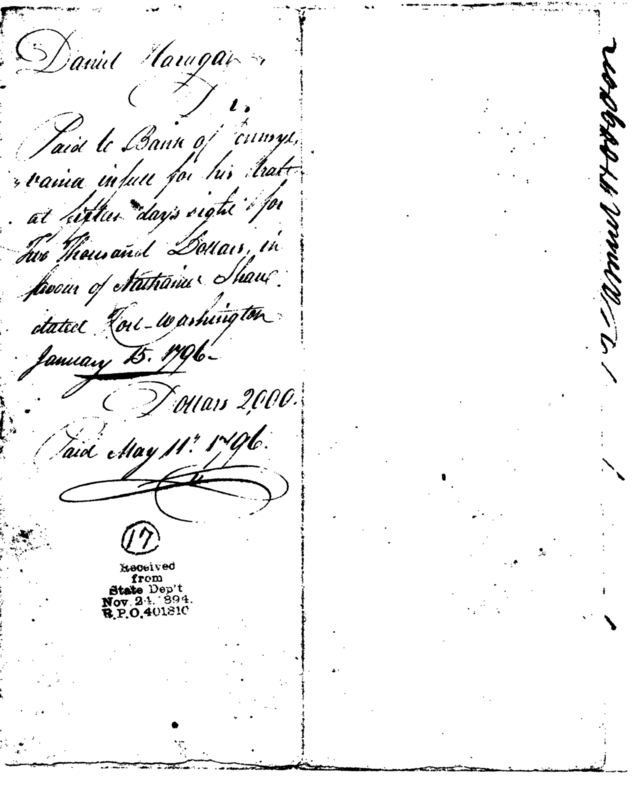 Daniel
Paid to Bank of Pennsyl,
vania in full for his draft
at fifteen days sight for
Two Thousand Dollars, in
favour of Nathaniel
dated Fort-Washington
January 15. 1796-
Dollars 2,000.
Paid May 11th 1796.
17
Received
from
State Dep't
Nov. 24. 1894.
R.P.O. 401810